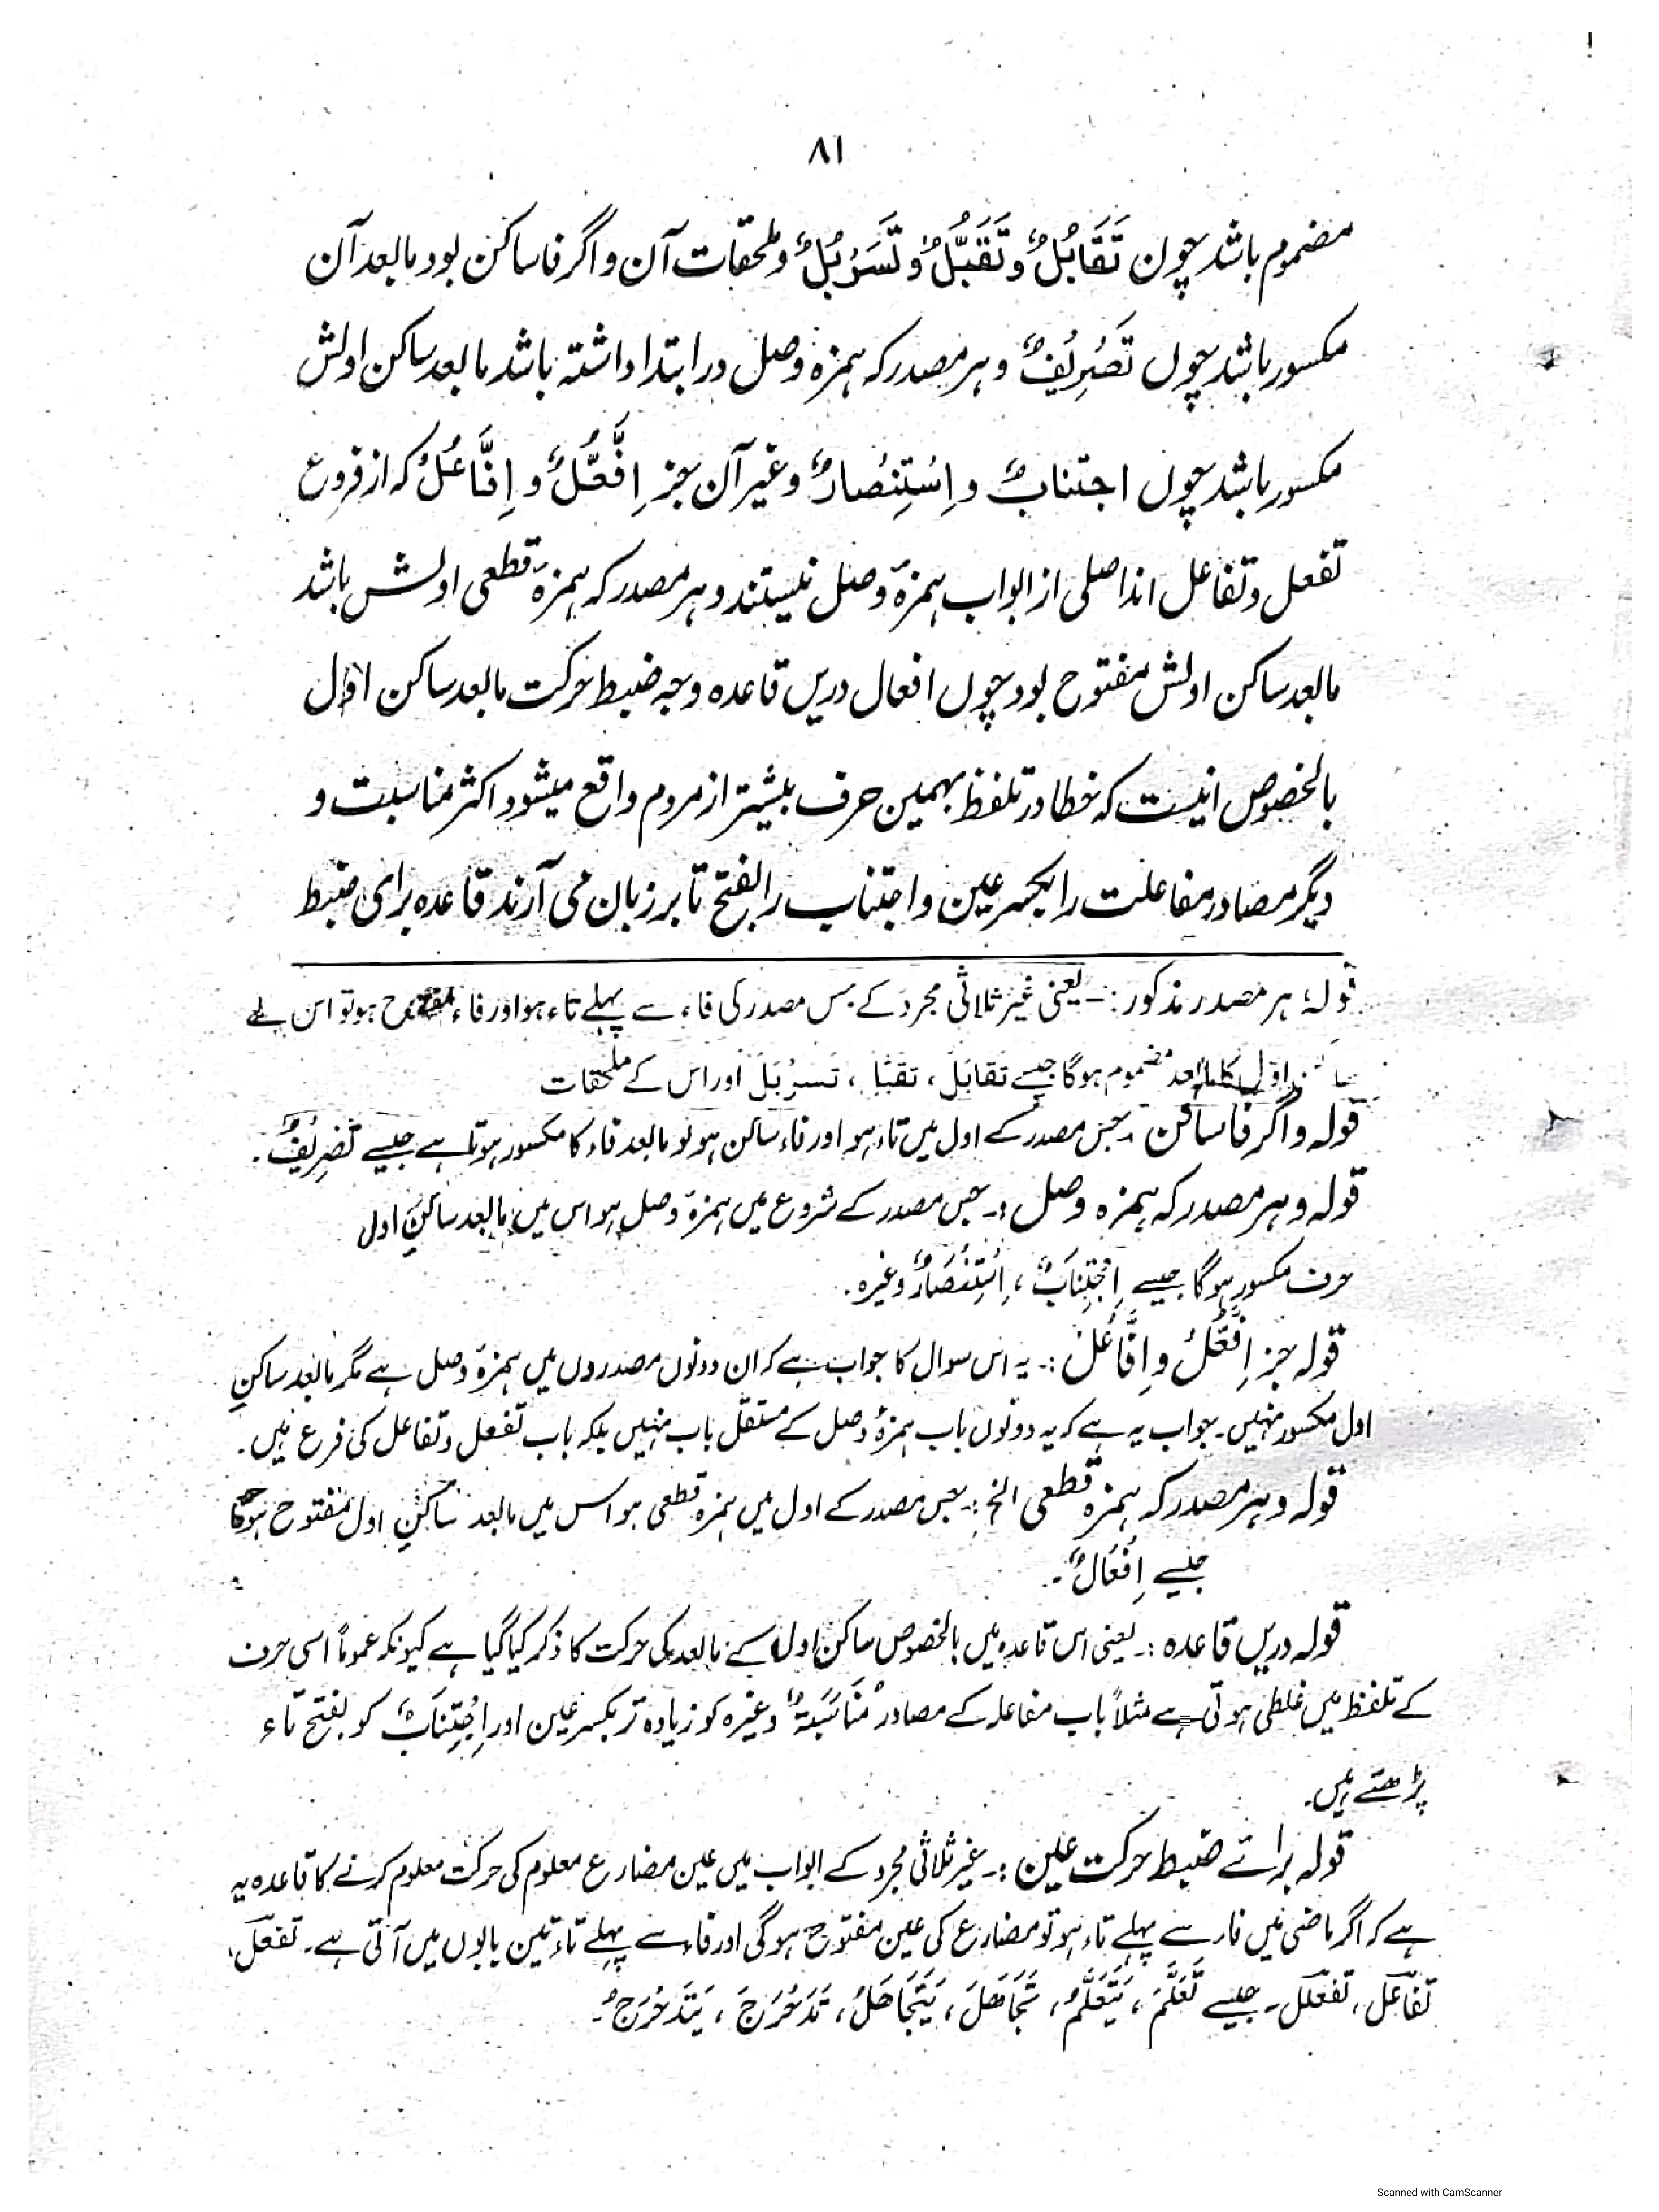 ۸۱
مضموم باشد چون تَقَابُلٌ و تَقَبُّلٌ و تَسَرْبُلٌ و ملحقات آن و اگر فا ساکن بود مابعد آن
مکسور باشد چوں تَصْرِیْفٌ و ہر مصدر کہ ہمزہ وصل در ابتدا داشتہ باشد مابعد ساکن اولش
مکسور باشد چوں اجتنابٌ و اِسْتِنْصارٌ و غیر آن جز اِفَّعُّلٌ و اِفَّاعُلٌ کہ از فروع
تفعل و تفاعل اند اصلی از ابواب ہمزۂ وصل نیستند و ہر مصدر کہ ہمزۂ قطعی اولش باشد
مابعد ساکن اولش مفتوح بود چوں افعال دریں قاعدہ وجہ ضبط حرکت مابعد ساکن اول
بالخصوص اینست کہ خطا در تلفظ بہمین حرف بیشتر از مردم واقع میشود اکثر مناسبت و
دیگر مصادر مفاعلت را بکسر عین و اجتناب را بفتح تا بر زبان می آرند قاعدہ برای ضبط
قولہ ہر مصدر مذکور :۔ یعنی غیر ثلاثی مجرد کے جس مصدر کی فاء سے پہلے تاء ہو اور فاء مفتوح ہو تو اس کے
ساکن اوّل کا مابعد مضموم ہوگا جیسے تقابَل ، تقبّل ، تَسرْبَلَ اور اس کے ملحقات
قولہ و اگر فا ساکن :۔ جس مصدر کے اول میں تاء ہو اور فاء ساکن ہو تو مابعد فاء کا مکسور ہوتا ہے جیسے تَصْرِیْفٌ ۔
قولہ و ہر مصدر کہ ہمزہ وصل :۔ جس مصدر کے شروع میں ہمزۂ وصل ہو اس میں مابعد ساکنِ اول
حرف مکسور ہوگا جیسے اِجْتِنَابٌ ، اِسْتِنْصَارٌ وغیرہ ۔
قولہ جز اِفَّعُّلٌ و اِفَّاعُلٌ :۔ یہ اس سوال کا جواب ہے کہ ان دونوں مصدروں میں ہمزۂ وصل ہے مگر مابعد ساکنِ
اول مکسور نہیں ۔ جواب یہ ہے کہ یہ دونوں باب ہمزۂ وصل کے مستقل باب نہیں بلکہ باب تفعل و تفاعل کی فرع ہیں ۔
قولہ و ہر مصدر کہ ہمزہ قطعی الخ :۔ جس مصدر کے اول میں ہمزہ قطعی ہو اس میں مابعد ساکنِ اول مفتوح ہوگا
جیسے اِفْعَالٌ ۔
قولہ دریں قاعدہ :۔ یعنی اس قاعدہ میں بالخصوص ساکن اول کے مابعد کی حرکت کا ذکر کیا گیا ہے کیونکہ عموماً اسی حرف
کے تلفظ میں غلطی ہوتی ہے مثلاً باب مفاعلہ کے مصادر مُنَاسَبَةٌ وغیرہ کو زیادہ تر بکسر عین اور اِجْتِنَابٌ کو بفتح تاء
پڑھتے ہیں ۔
قولہ برائے ضبط حرکت عین :۔ غیر ثلاثی مجرد کے ابواب میں عین مضارع معلوم کی حرکت معلوم کرنے کا قاعدہ یہ
ہے کہ اگر ماضی میں فاء سے پہلے تاء ہو تو مضارع کی عین مفتوح ہوگی اور فاء سے پہلے تاء تین بابوں میں آتی ہے ۔ تفعّل،
تفاعَل ، تفعلَل ۔ جیسے تَعَلَّمَ ، يَتَعَلَّمُ ، تَجَاهَلَ ، يَتَجَاهَلُ ، تَدَحْرَجَ ، يَتَدَحْرَجُ ۔
Scanned with CamScanner